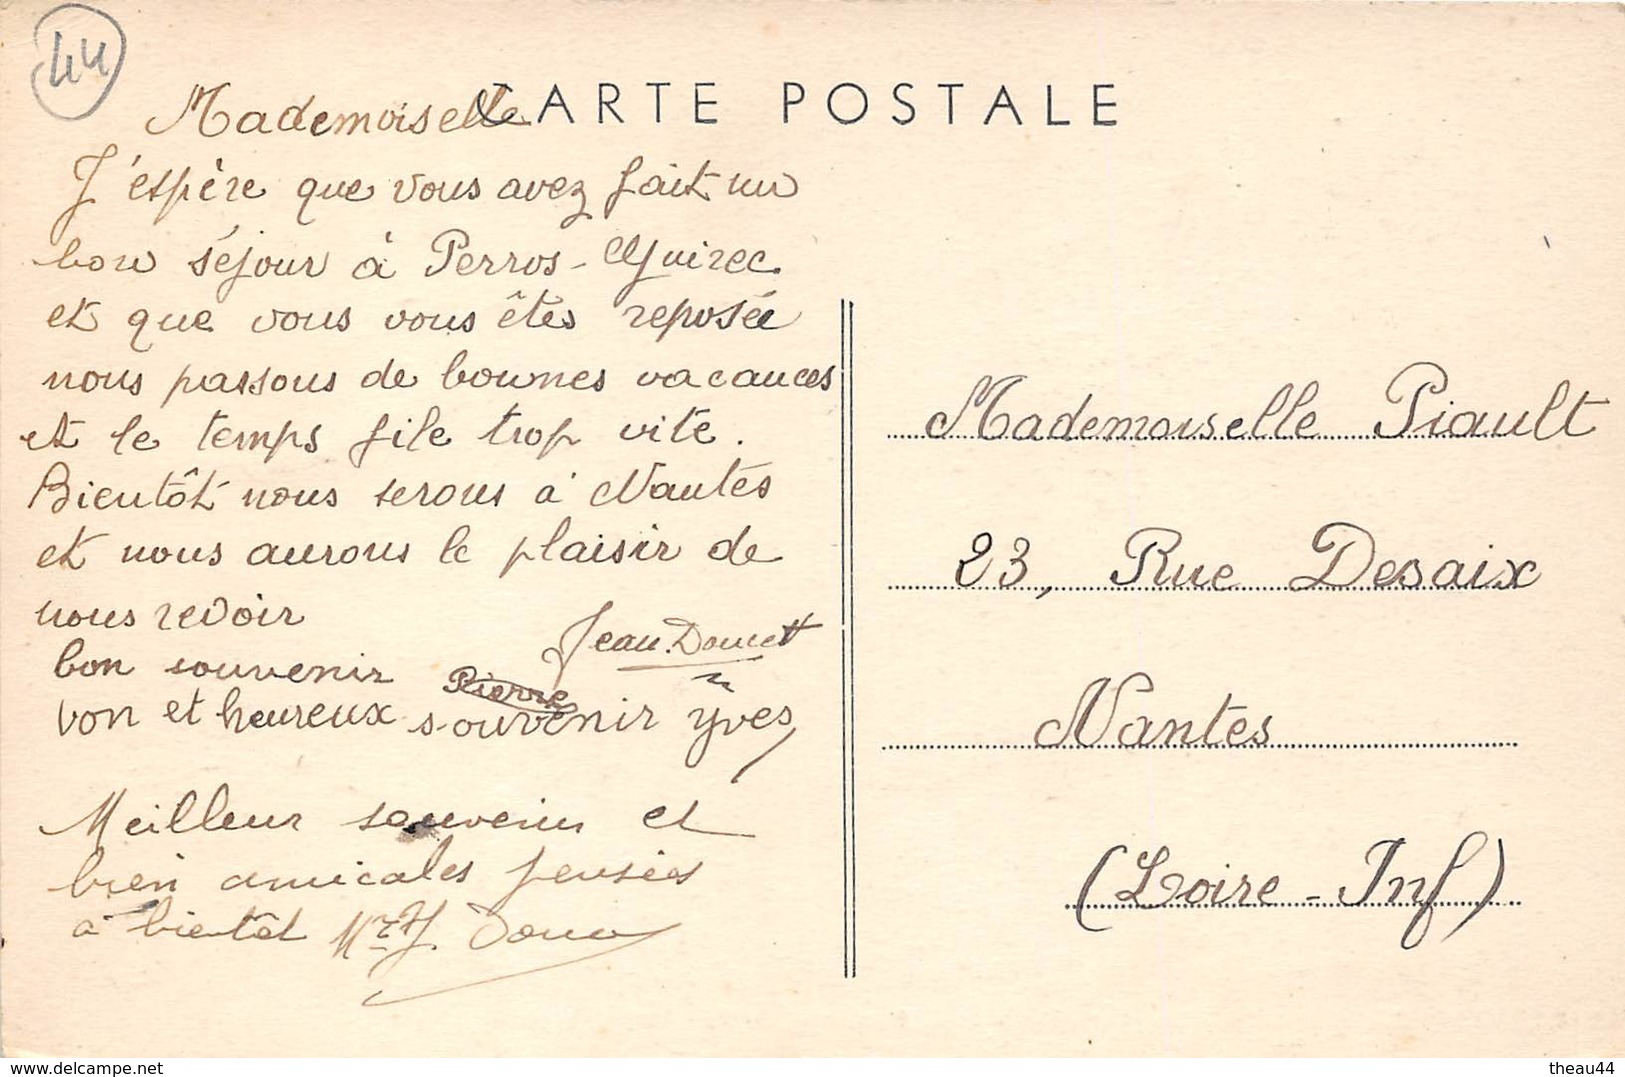 44
CARTE POSTALE
Mademoiselle
J'espère que vous avez fait un
bon séjour à Perros-Guirec.
et que vous vous êtes reposée
nous passons de bonnes vacances
et le temps file trop vite.
Bientôt nous serons à Nantes
et nous aurons le plaisir de
nous revoir
Jean Doucet
bon souvenir
Pierre
von et heureux souvenir Yves
Meilleur souvenir et
bien amicales pensées
à bientôt
Mademoiselle Piault
23, Rue Desaix
Nantes
(Loire-Inf)
theau44